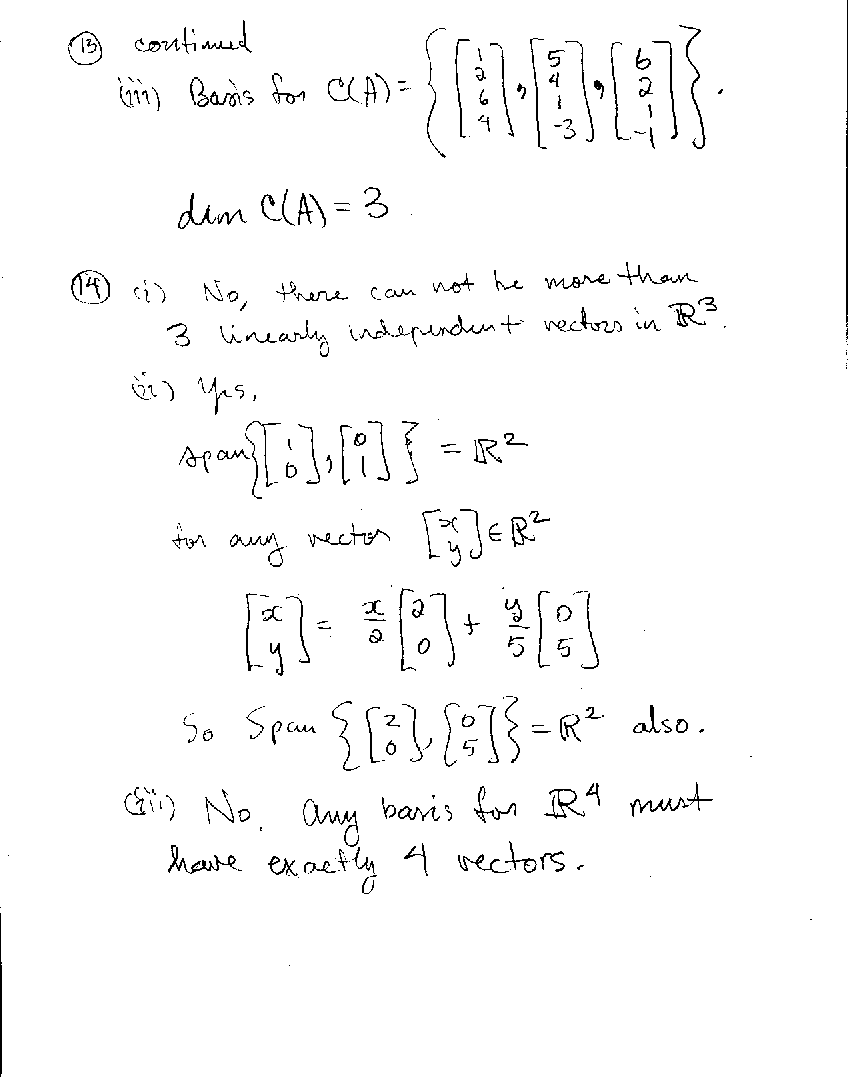 ⑬ continued
(iii) Basis for C(A) = { [1 2 6 4], [5 4 1 -3], [6 2 1 -1] }.
dim C(A) = 3.
⑭ (i) No, there can not be more than
3 linearly independent vectors in ℝ³.
(ii) Yes,
span{ [1 0], [0 1] } = ℝ²
for any vector [x y] ∈ ℝ²
[x y] = x/2 [2 0] + y/5 [0 5]
So Span { [2 0], [0 5] } = ℝ² also.
(iii) No. Any basis for ℝ⁴ must
have exactly 4 vectors.